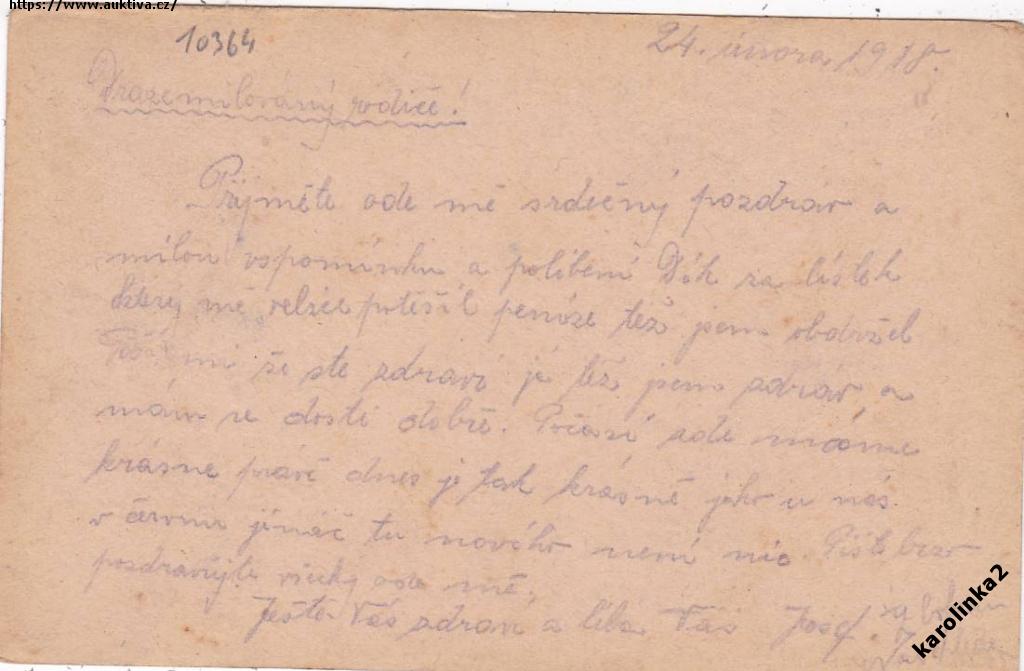 https://www.auktiva.cz/
10364
24. února 1918.
Drazemilovaný rodiče!
Příjměte ode mě srdečný pozdrav a
milou vspomínku a políbení Dík za lístek
který mě velice potěšil peníze též jsem obdržel
Těší mi že ste zdraví já též jsem zdráv a
mám se dosti dobře. Počasí zde máme
krásne právě dnes je tak krásně jako u nás
v červnu jináč tu nového není nic Pište brzo
pozdravujte všecky ode mě.
Ještě Vás zdraví a líbá Váš Josef.
karolinka2